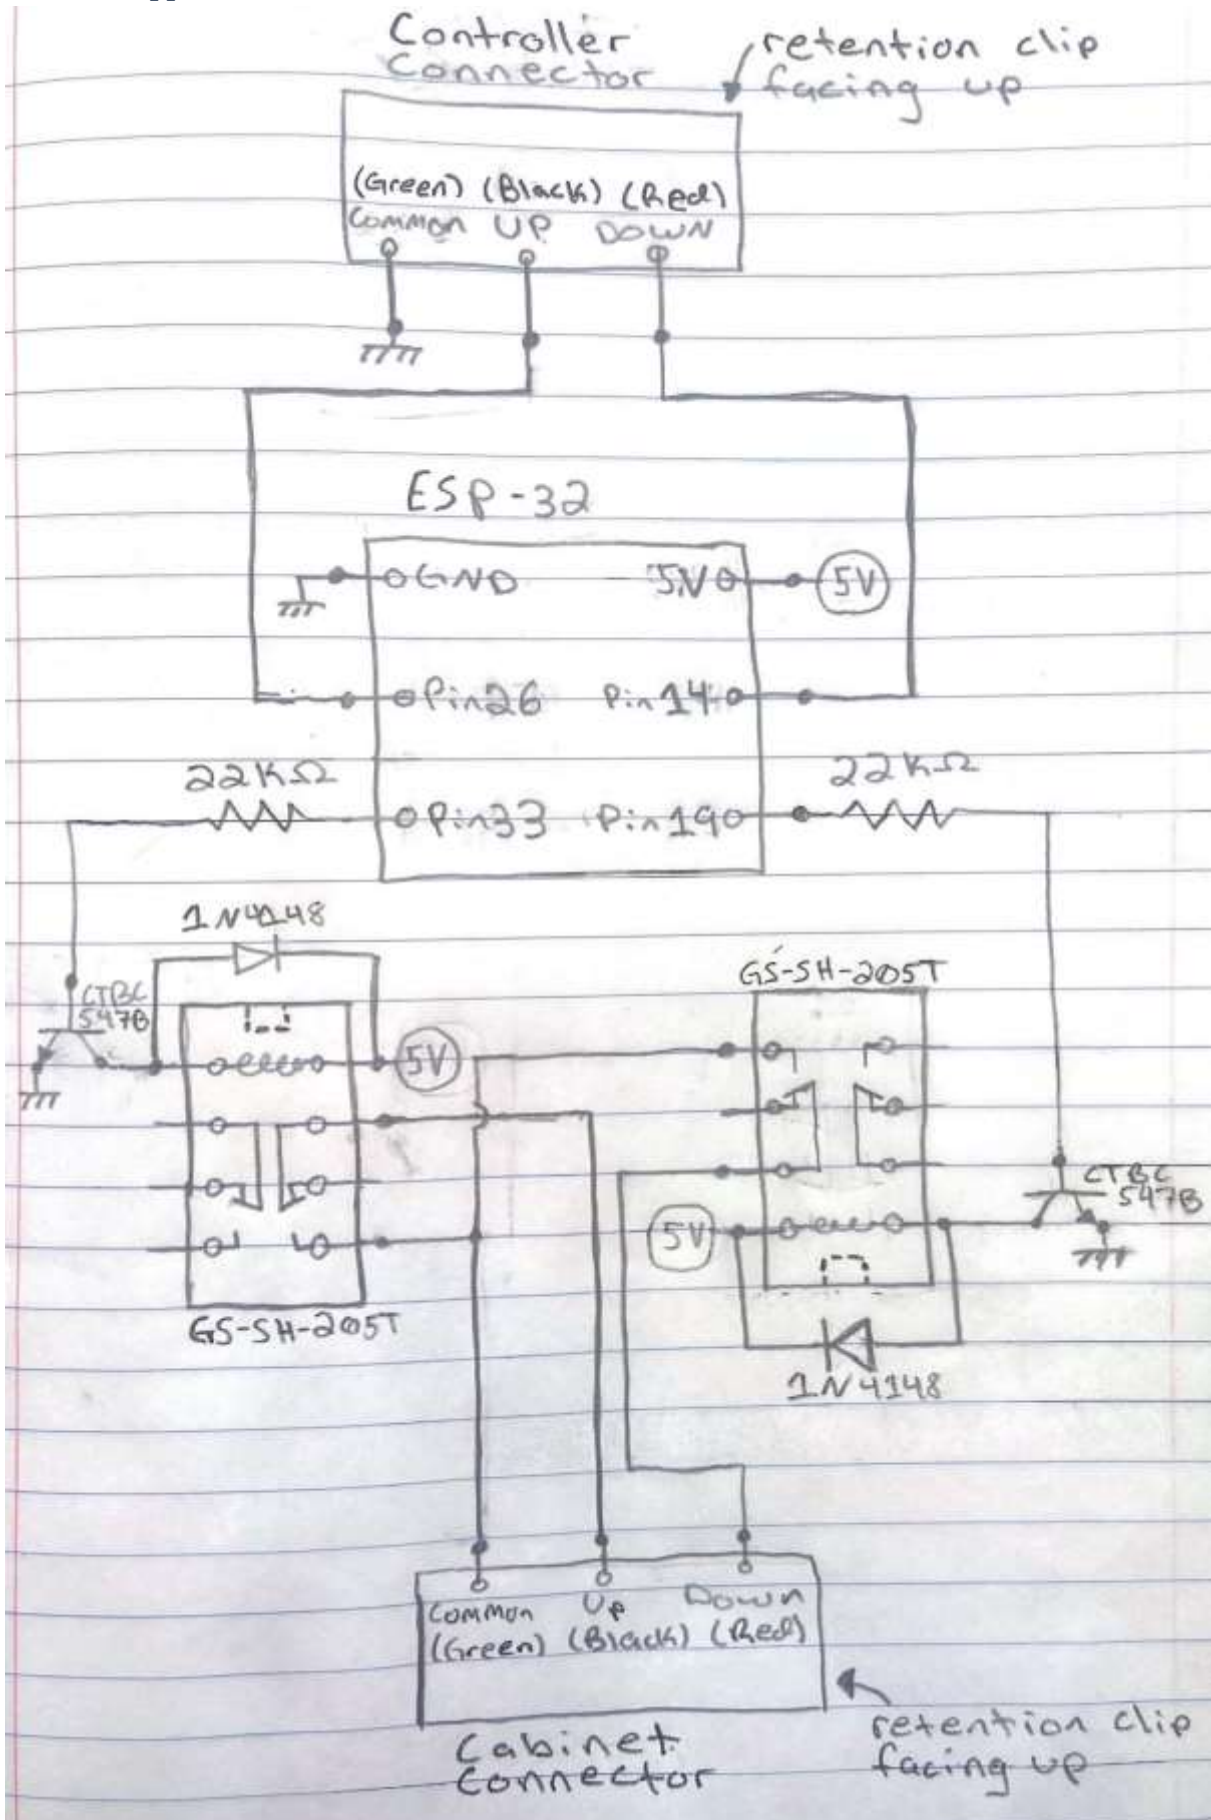 Controller
Connector
retention clip
facing up
(Green) (Black) (Red)
Common UP DOWN
ESP-32
GND 5V 5V
Pin26 Pin14
22KΩ 22KΩ
Pin33 Pin19
1N4148
CTBC
547B
GS-SH-205T
5V
CTBC
547B
5V
GS-SH-205T
1N4148
Common Up Down
(Green) (Black) (Red)
Cabinet
Connector
retention clip
facing up